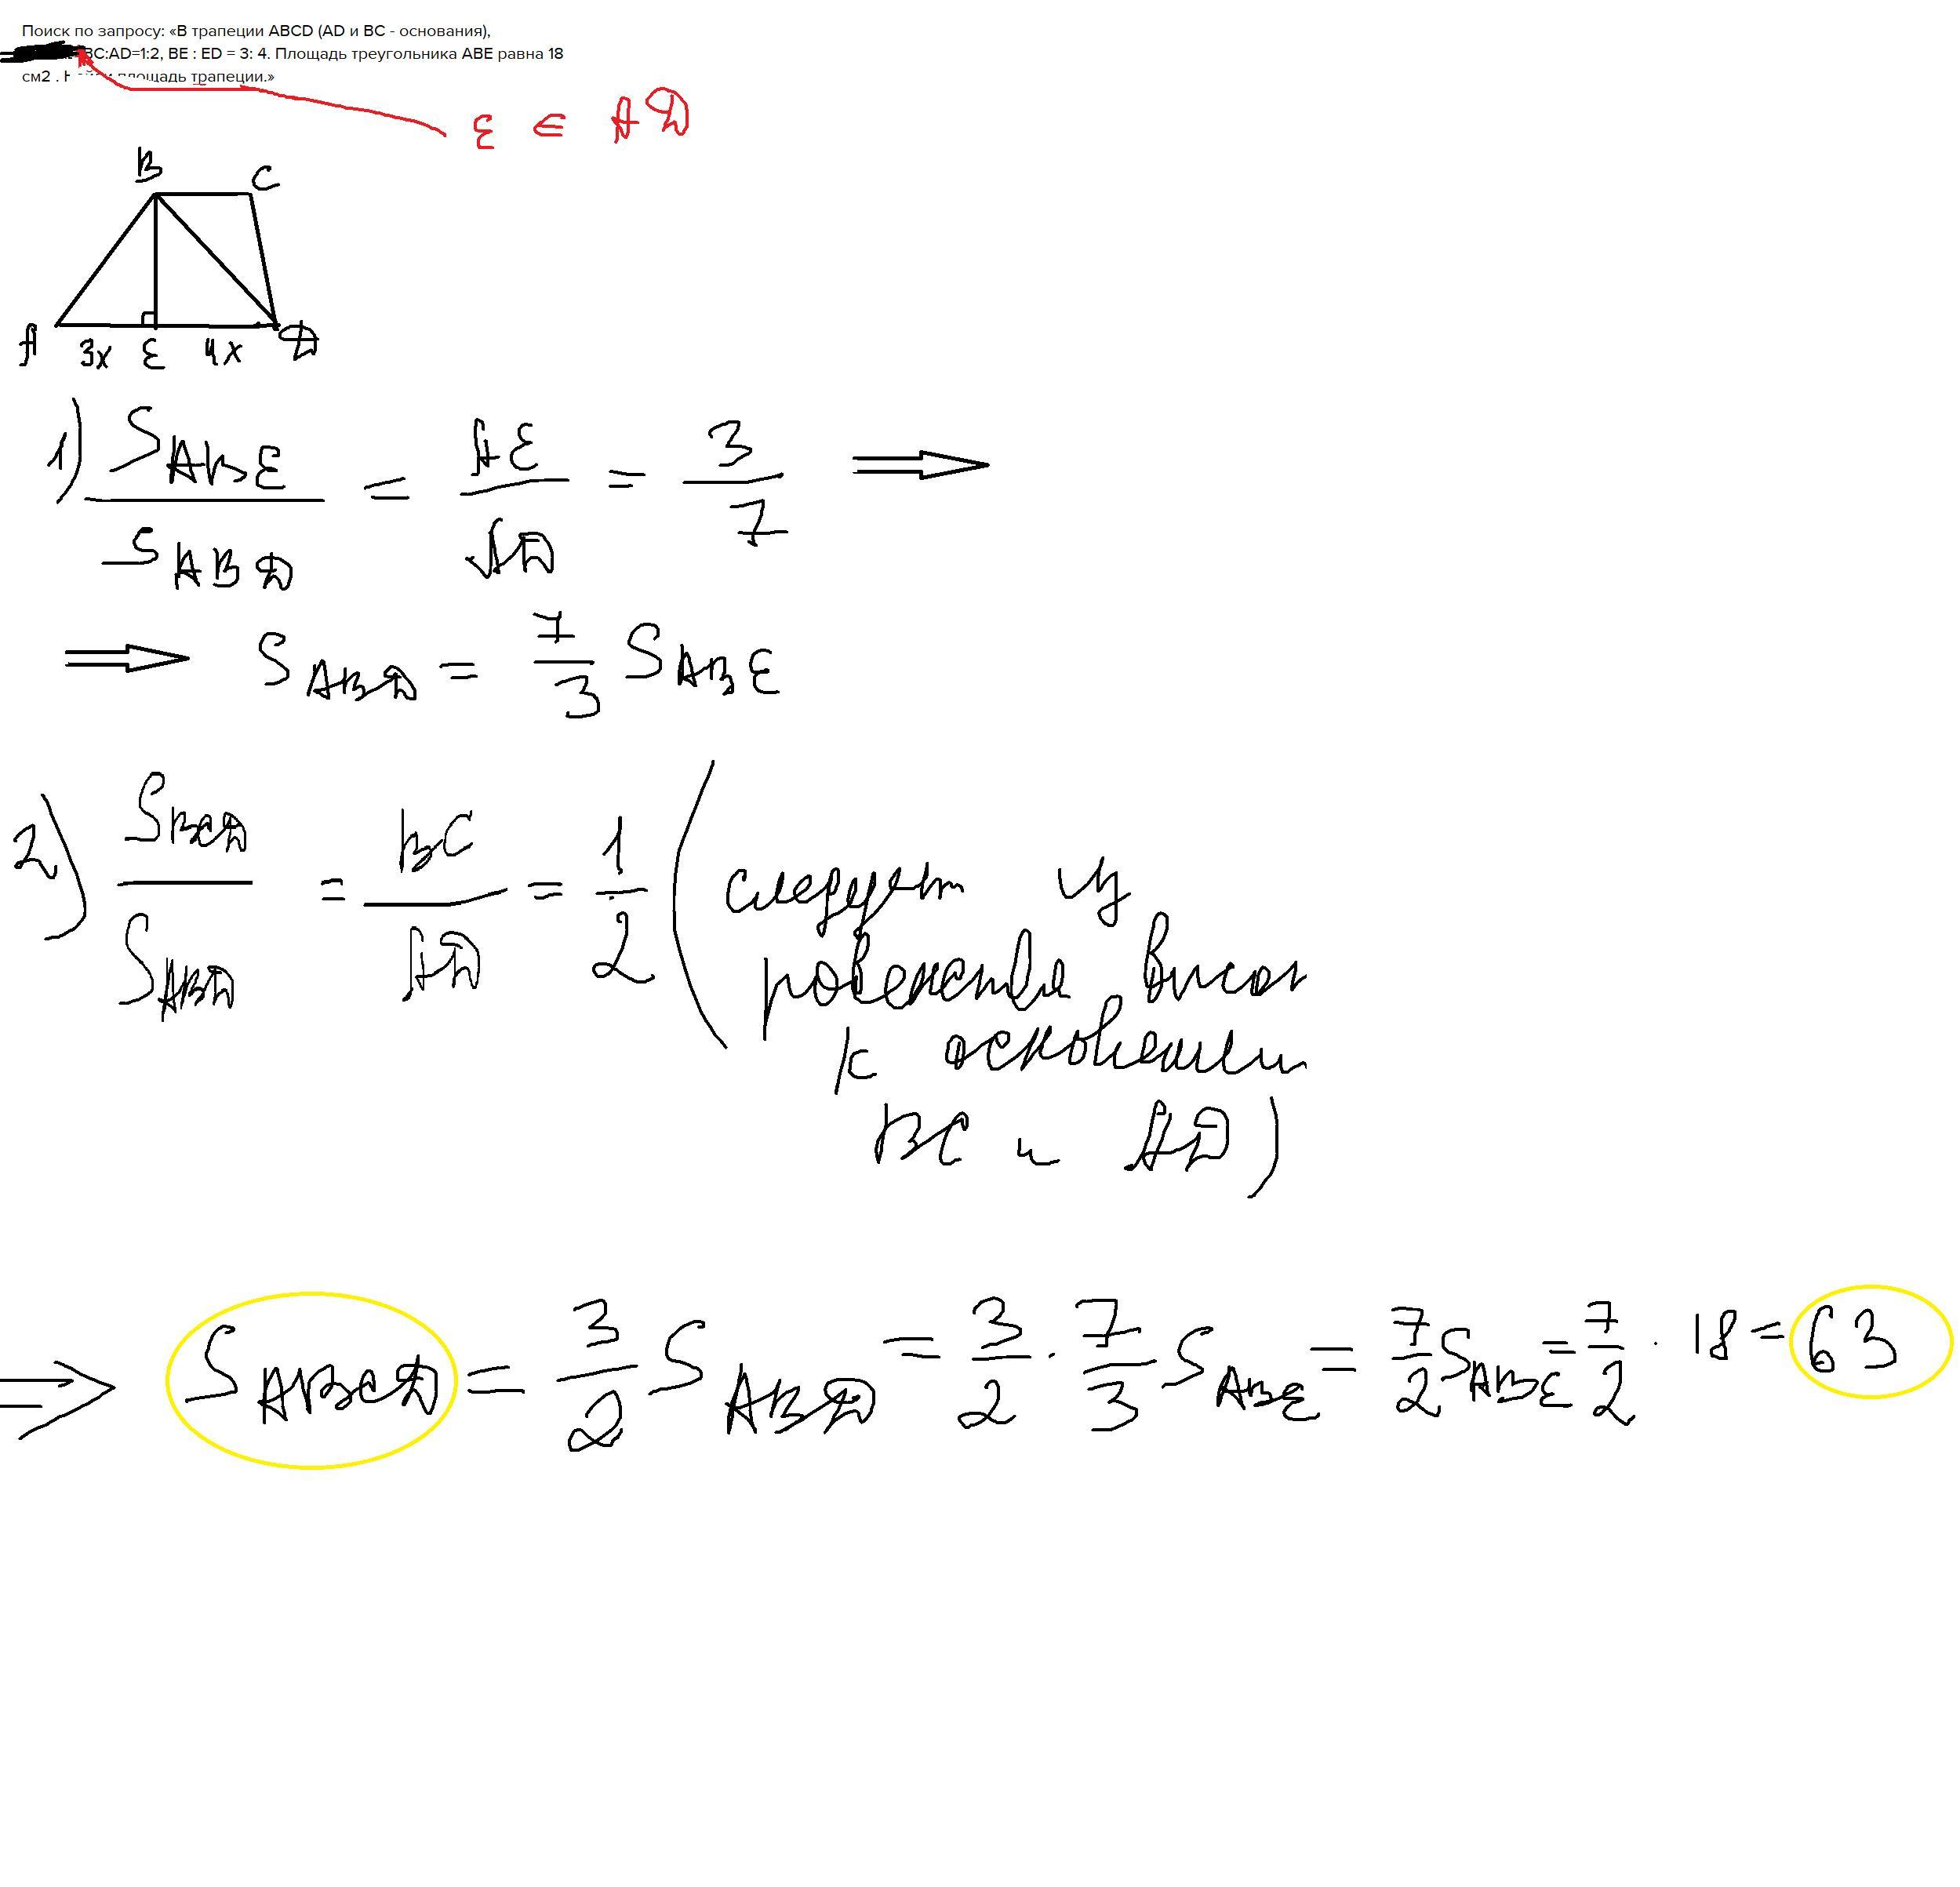 Поиск по запросу: «В трапеции ABCD (AD и BC - основания),
BC:AD=1:2, BE : ED = 3: 4. Площадь треугольника ABE равна 18
см2 . площадь трапеции.»
E ∈ AD
B C
A 3x E 4x D
1) S_ABE / S_ABD = AE / AD = 3 / 7 ⟹
⟹ S_ABD = 7/3 S_ABE
2) S_BCD / S_ABD = BC / AD = 1 / 2 (следует из
равенства высот
к основаниям
BC и AD)
⟹ S_ABCD = 3/2 S_ABD = 3/2 · 7/3 S_ABE = 7/2 S_ABE = 7/2 · 18 = 63